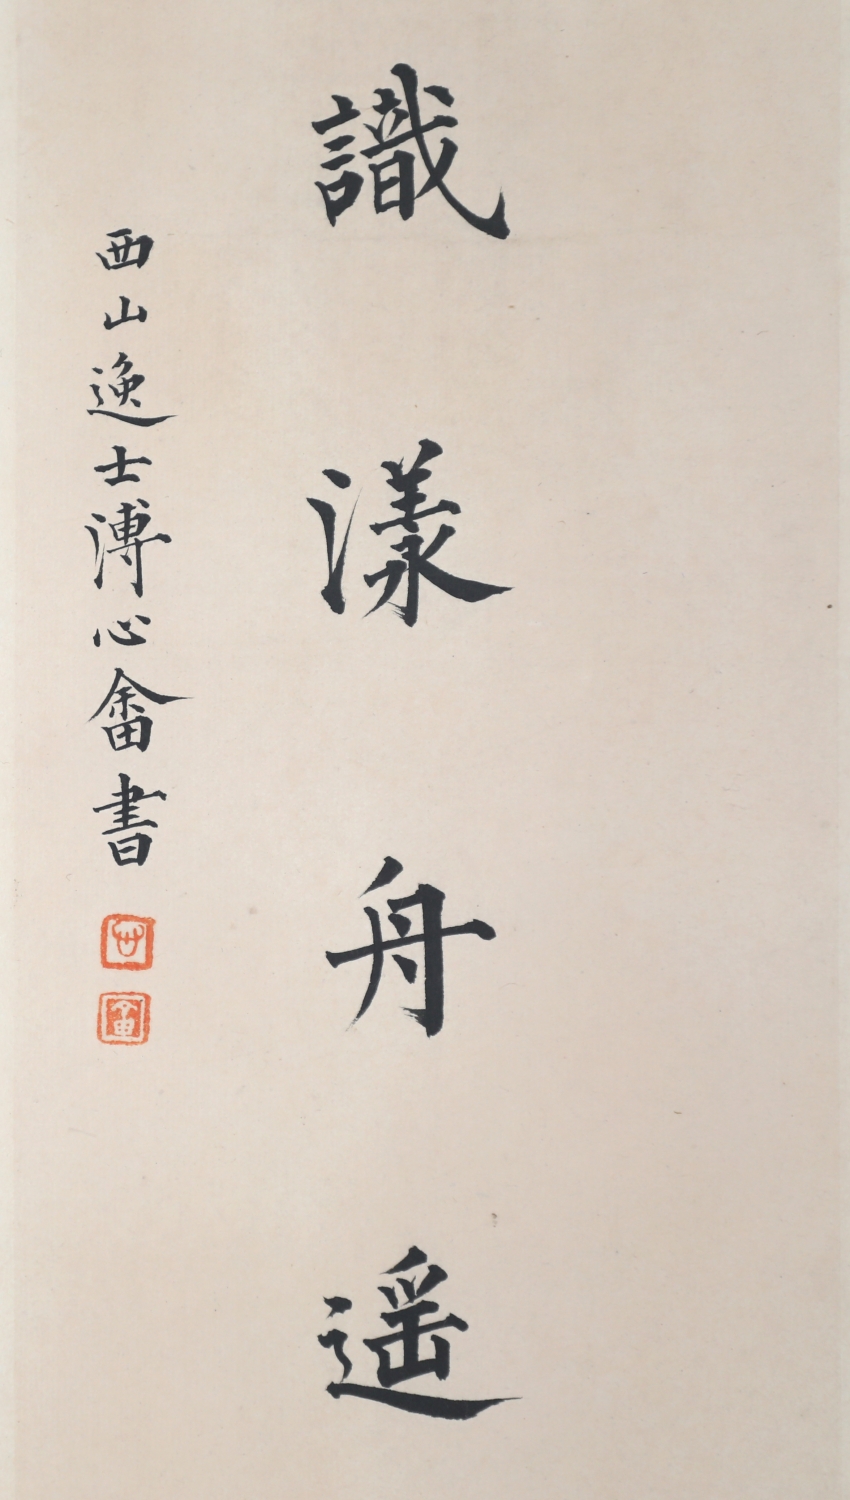 識漾舟遥
西山逸士溥心畬書